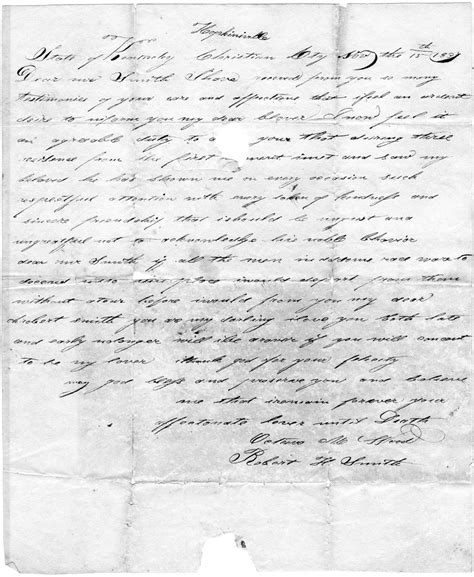 Hopkinsville
State of Kentucky Christian Cty Nov the 15th
Dear mr Smith I have received from you so many
testimonies of your care and affections that ifeel an ardent
desire to inform you my dear lover I now feel it
an agreeable duty to your that during three
residence from the first imet and saw my
beloved he has shown me on every occasion such
respectful attention with every token of kindness and
sincere friendship that ishould be unjust and
ungreatful not to acknowledge his noble behavior
dear mr Smith if all the men in adams race ware to
succeed into his place iwould depart from them
without atear before iwould from you my dear
robert smith you are my darling ilove you both late
and early nolonger will ibe if you will concent
to be my lover thank god for your
may god bless and preserve you and believe
me that iremain forever your
affectunate lover until Death
M Wood
Robert H Smith